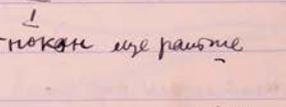 -нокон еще раньше